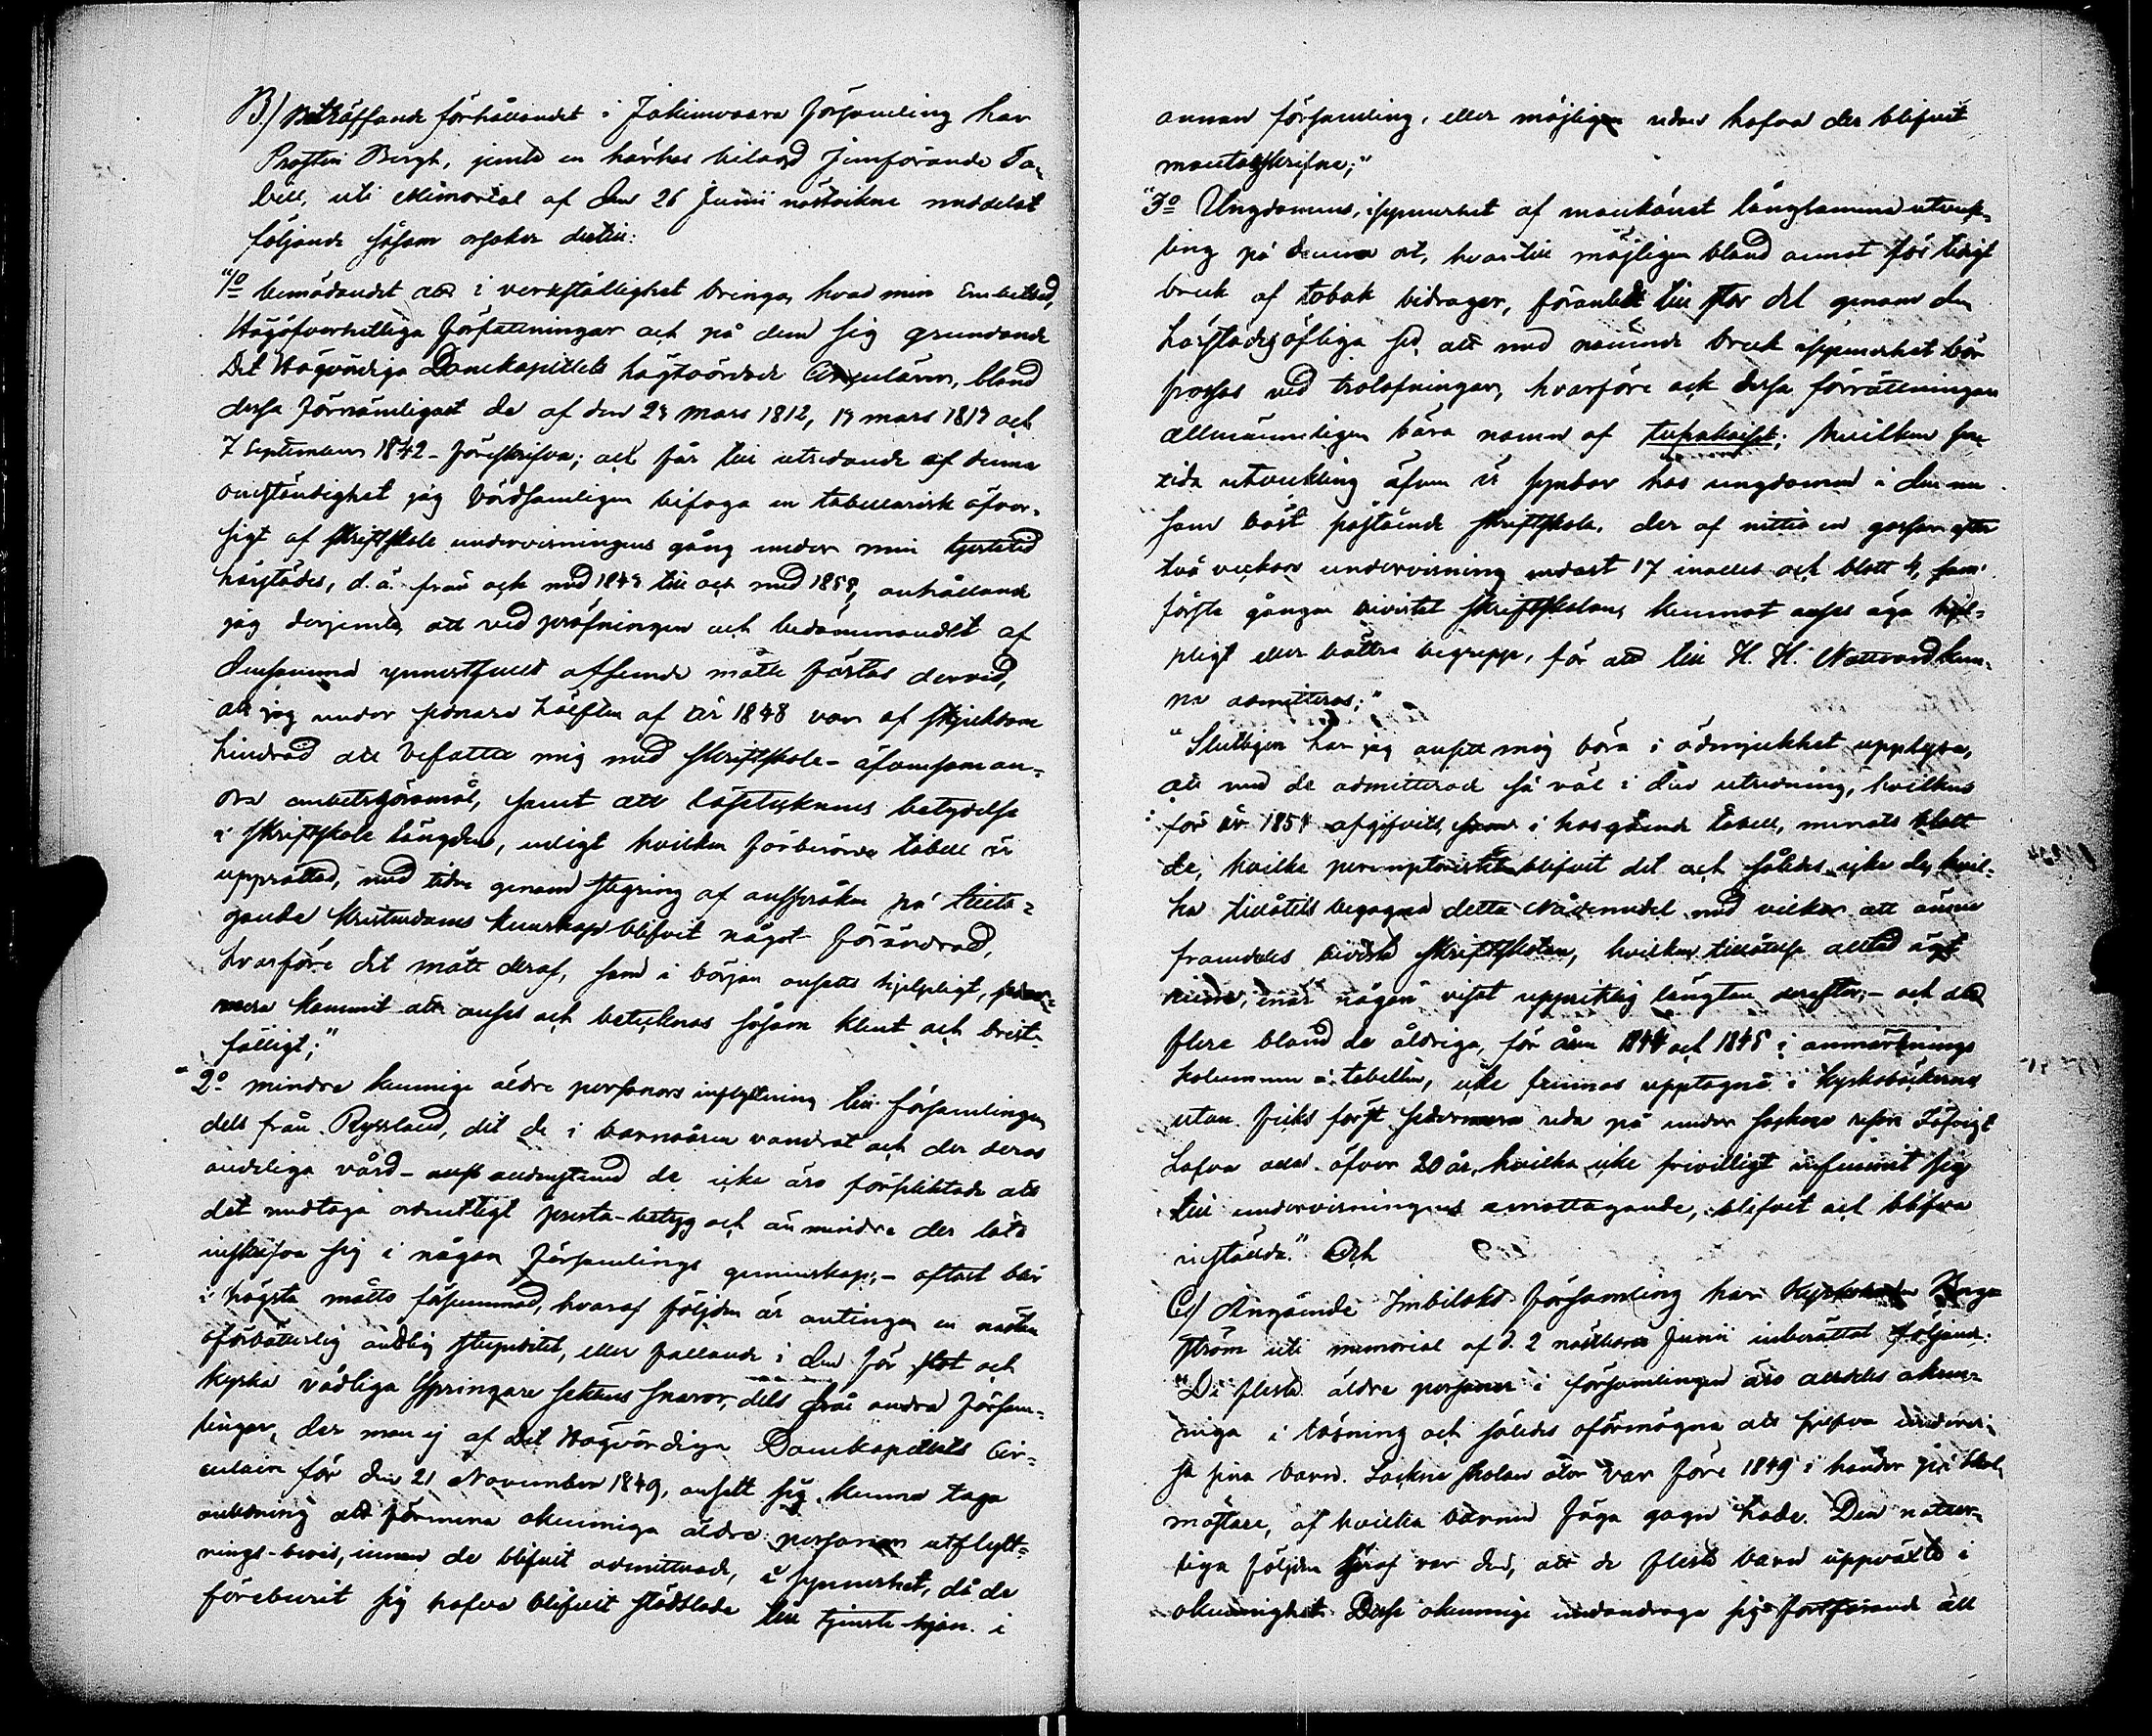 B.) Beträffande förhållandet i Jakimvaara församling har
Prosten Bergh, jemte en härhos bilagd jemförande Ta-
bell, uti Memorial af den 26 Junii nästvikne meddelat
följande såsom orsaker dertill:
"1o bemödandet att i verkställighet bringa, hvad min Embetsed,
Högöfverhetliga författningar och på dem sig grundande
Det Högvördiga Domkapitlets högtvördade Cirkulärer, bland
dessa förnämligast de af den 24 mars 1812, 19 mars 1817 och
7 September 1842 föreskrifva; och får till utredande af denna
omständighet jag vördsamligen bifoga en tabellarisk öfver-
sigt af skriftskole undervisningens gång under min tjenstetid
härstädes, d.ä. från och med 1843 till och med 1858, anhållande
jag derjemte, att vid pröfningen och bedömmandet af
densamma ynnestfullt afseende måtte fästas dervid,
att jag under senare hälften af år 1848 var af sjukdom
hindrad att befatta mig med skriftskole- äfvensom an-
dra embetsgöromål, samt att läsetecknens betydelse
i skriftskole längden, enligt hvilken förberörde tabell är
upprättad, med tiden genom stegring af anspråken på tillta-
gande kristendoms kunskap blifvit något förändrad,
hvarföre det mått deraf, som i början ansetts hjelpligt, seder-
mera kommit att anses och betecknas såsom klent och brist-
fälligt;"
"2o mindre kunnige äldre personers inflyttning till församlingen
dels från Ryssland, dit de i barnaåren vandrat och der deras
andeliga vård - de icke äro förpliktade att
det medtaga ordentligt presta-betyg och än mindre der låta
inskrifva sig i någon församlings gemenskap; - oftast blir
i högsta måtto försummad, hvaraf följden är antingen en nästan
oförbätterlig andelig stupiditet, eller fallande i den för stat och
kyrka vådliga Springare sektens snaror, dels från andra försam-
lingar, der man ej af Det Högvördiga Domkapitlets Cir-
culair för den 21 November 1849, ansett sig kunna taga
anledning att förmena okunniga äldre personer utflytt-
nings-bevis, innan de blifvit admitterade, i synnerhet, då de
föreburit sig hafva blifvit städslade till tjenste-hjon i
annan församling, eller möjligen redan hafva der blifvit
mantalsskrifne;"
"3o Ungdomens, isynnerhet af mankönet långsamma utveck-
ling på denna ort, hvartill möjligen bland annat för tidigt
bruk af tobak bidrager, föranledt till stor del genom den
härstädes öfliga sed, att med nämnde bruk isynnerhet bör
prässas vid trolofningar, hvarföre ock dessa förrättningar
allmänneligen bära namn af tupakaiset; hvilken sen-
tida utveckling äfven är synbar hos ungdomen i den nu
som bäst påstående skriftskola, der af nittio en gossar efter
två veckors undervisning endast 17 inalles och blott 4, som
första gången bivistat skriftskolan, kunnat anses äga hjel-
pligt eller bättre begrepp, för att till H. H. Nattvard kun-
na admitteras;"
"Slutligen har jag ansett mig böra i ödmjukhet upplysa,
att med de admitterade så väl i den utredning, hvilken
för år 1854 afgifvits, som i hosgående tabell, menats blott
de, hvilka blifvit det och således icke de, hvil-
ka tillåtits begagna detta Nådemedel med vilkor att ännu
framdeles bivista skriftskolan, hvilken tillåtelse alltid ägt
rum, när någon visat uppriktig längtan derefter; - och att
flere bland de åldriga, för åren 1844 och 1845 i anmärknings
kolumnen i tabellen, icke funnos upptagne i kyrkoböckerna
utan ficks först sedermera reda på under socknen
öfver 20 år, hvilka icke frivilligt infunnit sig
till undervisningens emottagande, blifvit och blifva
inställda." Och
C.) Angående Imbilaks församling har Kyrkoherden
ström uti memorial af d. 2 nästlidne Junii inberättat följande:
"De flesta äldre personer i församlingen äro alldeles okun-
niga i läsning och således oförmögna att sjelfva undervi-
sa sina barn. Sockne skolan åter var före 1849 i händer på skol-
mästare, af hvilka barnen föga gagn hade. Den natur-
liga följden häraf var den, att de flesta barn uppväxte i
okunnighet. Desse okunnige undandraga sig fortfarande all